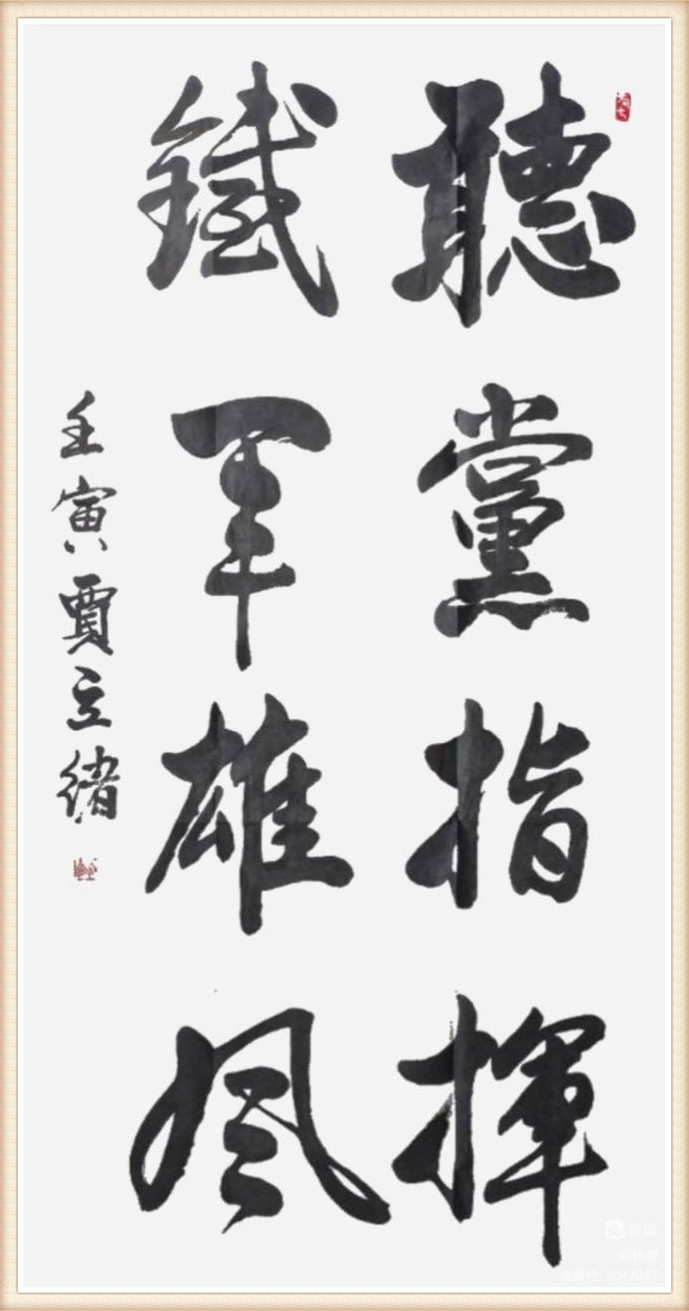 聽黨指揮
鐵軍雄風
壬寅賈立緒